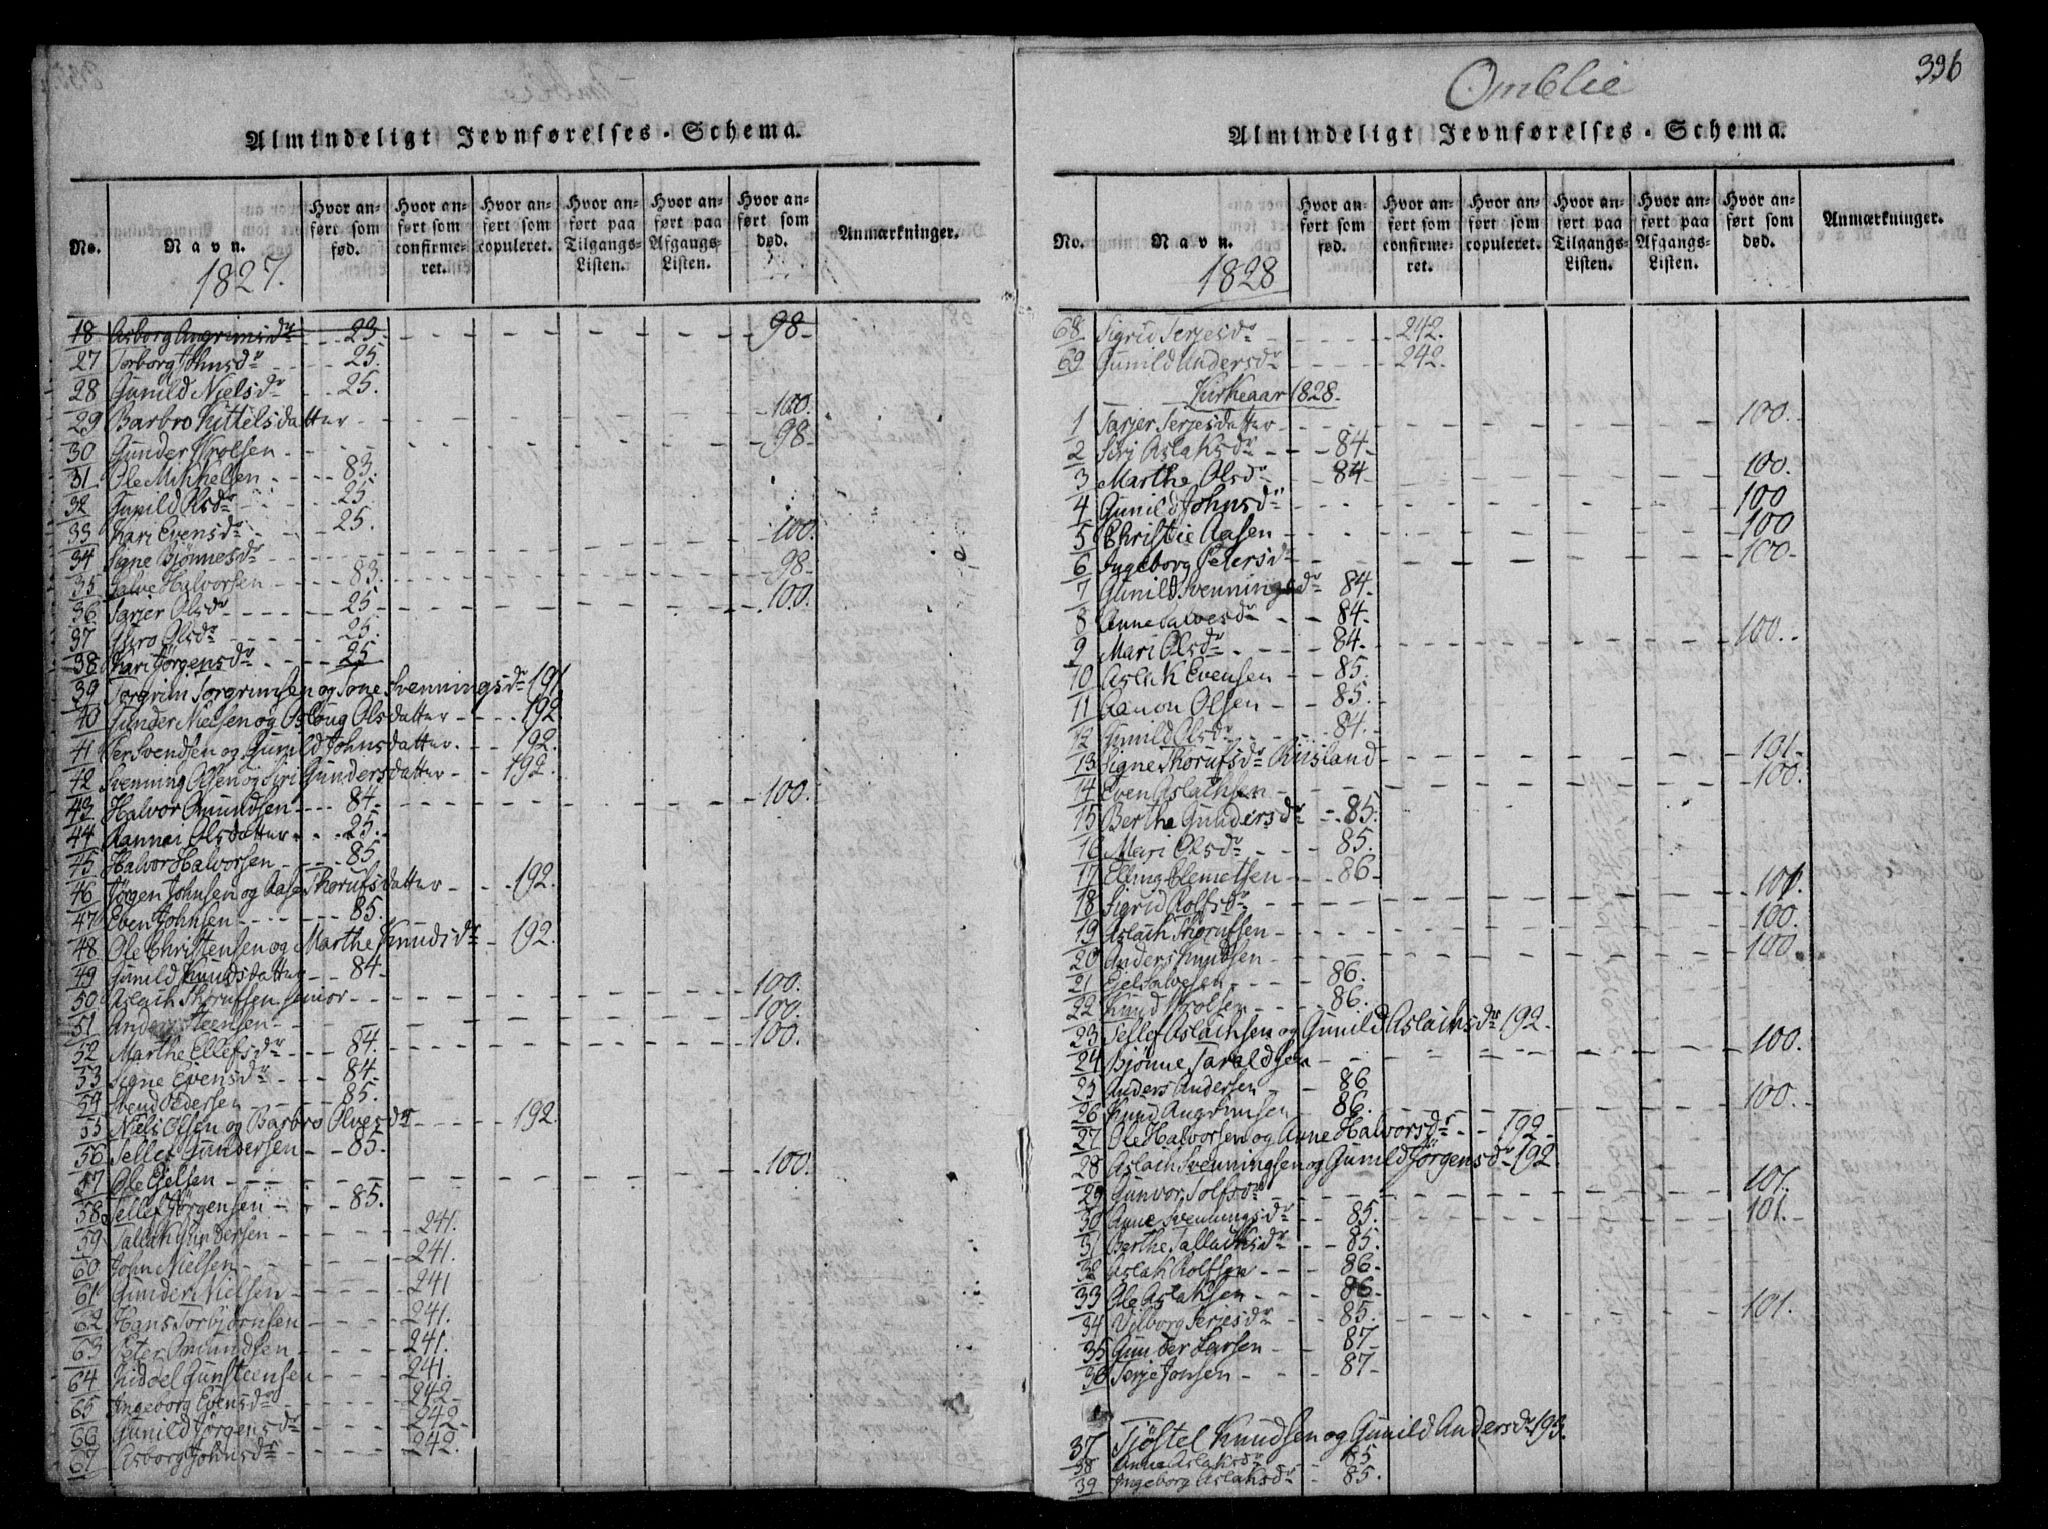 Almindeligt Jevnførelses-Schema.
No. Navn. 1827. Hvor anført som fød. Hvor anført som confirmeret. Hvor anført som copuleret. Hvor anført paa Tilgangs-Listen. Hvor anført paa Afgangs-Listen. Hvor anført som død. Anmærkninger.
18 Asborg Angrimsdr 23. 98
27 Torborg Johnsdr 25.
28 Gunild Nielsdr 25.
29 Barbro Kittelsdatter 100.
30 Gunder 98
31 Ole Mikkelsen 83.
32 Gunild Olsdr 25.
33 Kari Evensdr 25.
34 Signe Bjönnesdr 100.
35 Salve Halvorsen 83. 98
36 Tarjer Olsdr 25 100.
37 Guro Olsdr 25.
38 Kari Jörgensdr 25
39 Torgrim Torgrimsen og Tone Svenningsdr 191
40 Gunder Nielsen og Aslöug Olsdatter 192
41 Per Svendsen og Gunild Johnsdatter. 192.
42 Svenning Olsen og Siri Gundersdatter 192.
43 Halvor Omundsen 84. 100.
44 Aanner Olsdatter 25.
45 Halvor Halvorsen 85
46 Jörgen Johnsen og Aase Thorufsdatter 192.
47 Even Johnsen 85.
48 Ole Christensen og Marthe Knudsdr 192.
49 Gunild Knudsdatter 84
50 Aslach Thorufsen senior 100.
51 Anders Steensen 100.
52 Marthe Ellefsdr 84. 100.
53 Signe Evensdr 84
54 Svend Pedersen 85.
55 Niels Olsen og Barbro Olvesdr 192.
56 Tellef Gundersen 85.
57 Ole Ejelsen 100.
58 Tellef Jörgensen 85.
59 Tallak Gundersen 241.
60 John Nielsen 241.
61 Gunder Nielsen 241
62 Hans Torbjörnsen 241.
63 Peter Omundsen 241.
64 Gunsteensen 241.
65 Ingeborg Evensdr 242
66 Gunild Jörgensdr 242
67 Asborg Johnsdr 242.
Omblie
396
Almindeligt Jevnførelses-Schema.
No. Navn. 1828 Hvor anført som fød. Hvor anført som confirmeret. Hvor anført som copuleret. Hvor anført paa Tilgangs-Listen. Hvor anført paa Afgangs-Listen. Hvor anført som død. Anmærkninger.
68 Sigrid Terjesdr 242.
69 Gunild Andersdr 242.
Kirkeaar 1828.
1 Tarjer Terjesdatter 100.
2 Siri Aslaksdr 84
3 Marthe Olsdr 84 100.
4 Gunild Johnsdr 100
5 Christie Aasen 100
6 Ingeborg Petersdr 100
7 Gunild Svenningsdr 84
8 Anne Salvesdr 84
9 Mari Olsdr 84 100.
10 Aslak Evensen 85.
11 Aanon Olsen 85.
12 Gunild Olsdr 84.
13 Signe Thorufsdr Risland 101.
14 Even Aslachsen 100.
15 Berthe Gundersdr 85.
16 Mari Olsdr 85.
17 Elling Clemetsen 86
18 Sigrid Rolfsdr 101.
19 Aslach Thorufsen 100.
20 Anders Knudsen 100
21 Ejel Salvesen 86.
22 Knud 86.
23 Tellef Aslachsen og Gunild Aslachsdr 192.
24 Bjönne Taraldsen 100.
25 Anders Andersen 86
26 Knud Angrimsen 86. 100.
27 Ole Halvorsen og Anne Halvorsdr 192
28 Aslach Svenningsen og Gunild Jörgensdr 192.
29 Gunvor Tolfsdr 101.
30 Anne Svenningsdr 85. 101.
31 Berthe Tallachsdr 85.
32 Aslak Rolfsen 86
33 Ole Aslaksen 86
34 Vilborg Terjesdr 85. 101.
35 Gunder Larsen 87
36 Terje Jonsen 87
37 Tjöstel Knudsen og Gunild Andersdr 193.
38 Anne Aslaksdr 85
39 Ingeborg Aslaksdr 85.